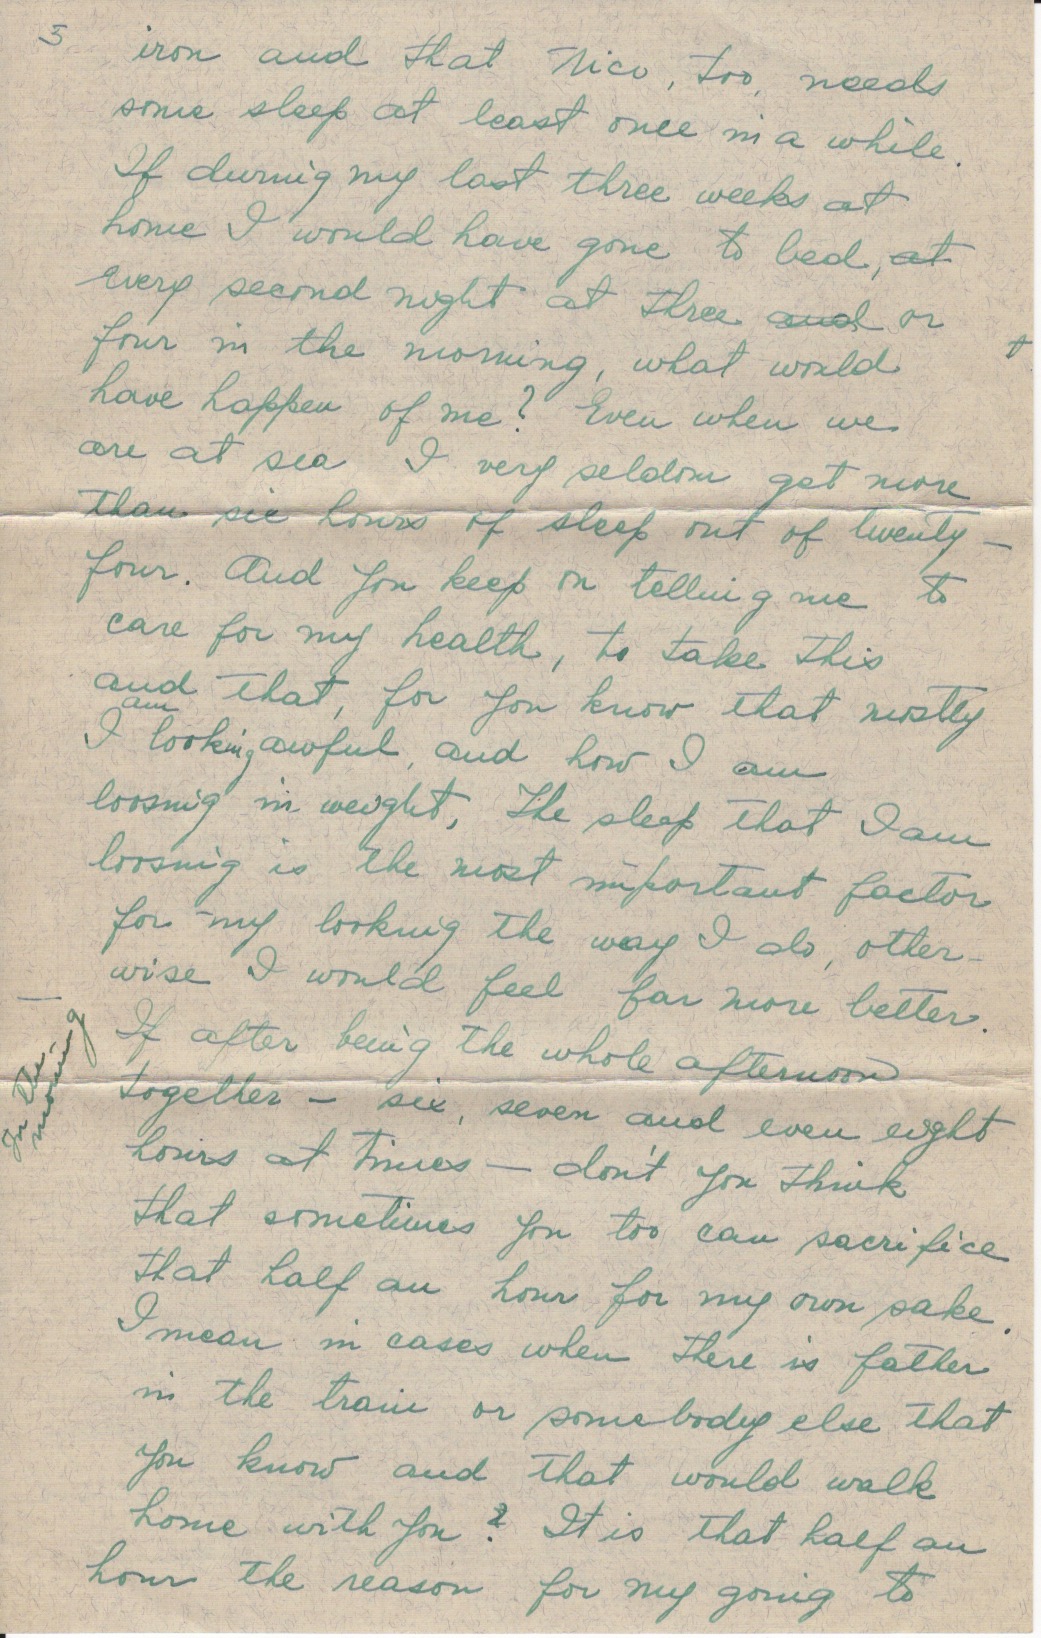 5
iron and that Nico, too, needs
some sleep at least once in a while.
If during my last three weeks at
home I would have gone to bed, at
every second night at three and or
four in the morning, what would
have happen of me? Even when we
are at sea I very seldom get more
than six hours of sleep out of twenty-
four. And you keep on telling me to
care for my health, to take this
and that, for you know that mostly
am
I looking awful, and how I am
loosing in weight, The sleep that I am
loosing is the most important factor
for my looking the way I do, other-
wise I would feel far more better.
If after being the whole afternoon
together - six, seven and even eight
hours at times - don't you think
that sometimes you too can sacrifice
that half an hour for my own sake.
I mean in cases when there is father
in the train or somebody else that
you know and that would walk
home with you? It is that half an
hour the reason for my going to
In the
morning